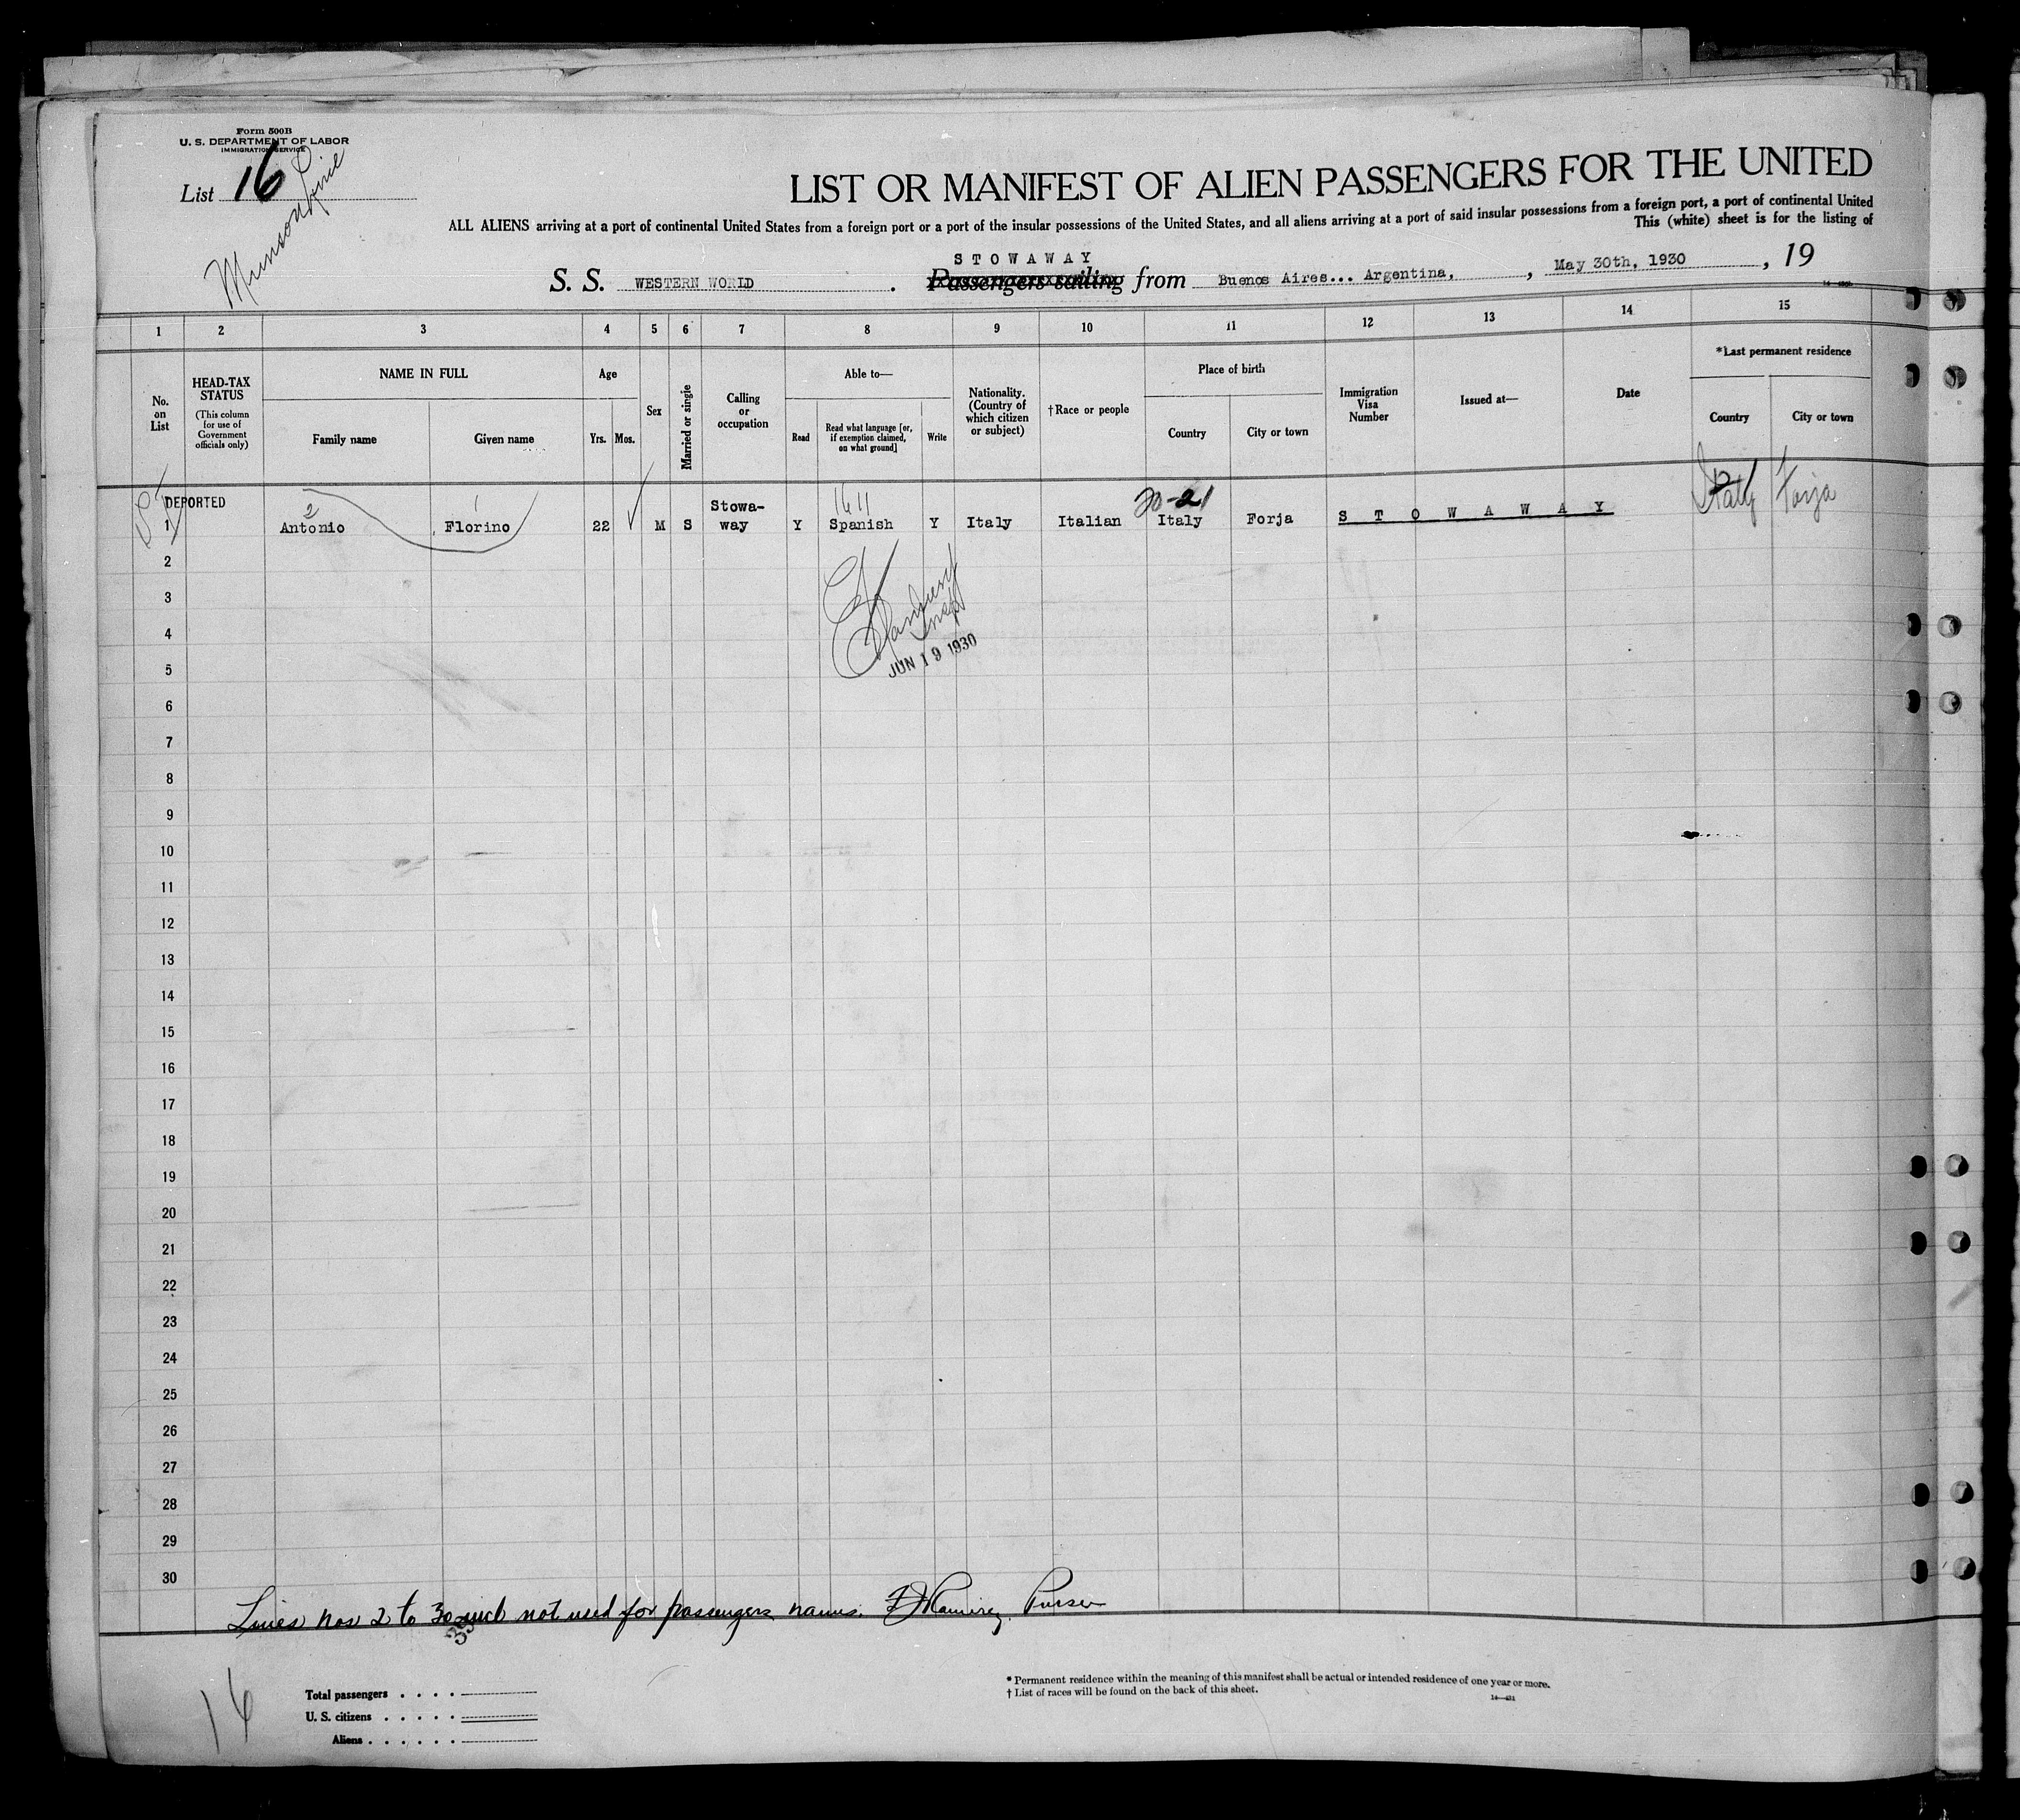 Form 500B
U. S. DEPARTMENT OF LABOR
IMMIGRATION SERVICE
List 16
Munson Line
LIST OR MANIFEST OF ALIEN PASSENGERS FOR THE UNITED
ALL ALIENS arriving at a port of continental United States from a foreign port or a port of the insular possessions of the United States, and all aliens arriving at a port of said insular possessions from a foreign port, a port of continental United
This (white) sheet is for the listing of
STOWAWAY
S. S. WESTERN WORLD . Passengers sailing from Buenos Aires... Argentina, , May 30th, 1930 , 19
1 2 3 4 5 6 7 8 9 10 11 12 13 14 15
No. on List
HEAD-TAX STATUS
(This column for use of Government officials only)
NAME IN FULL
Family name Given name
Age
Yrs. Mos.
Sex
Married or single
Calling or occupation
Able to—
Read
Read what language [or, if exemption claimed, on what ground]
Write
Nationality. (Country of which citizen or subject)
†Race or people
Place of birth
Country City or town
Immigration Visa Number
Issued at—
Date
*Last permanent residence
Country City or town
DEPORTED
2 1 1611 20-21
1 Antonio Florino 22 M S Stowa-way Y Spanish Y Italy Italian Italy Forja STOWAWAY Italy Forja
2
3
4
Insp
JUN 19 1930
5
6
7
8
9
10
11
12
13
14
15
16
17
18
19
20
21
22
23
24
25
26
27
28
29
30
Lines nos 2 to 30 incl not used for passengers names. Ramirez. Purser
16
Total passengers . . . .
U. S. citizens . . . . .
Aliens . . . . . .
* Permanent residence within the meaning of this manifest shall be actual or intended residence of one year or more.
† List of races will be found on the back of this sheet.